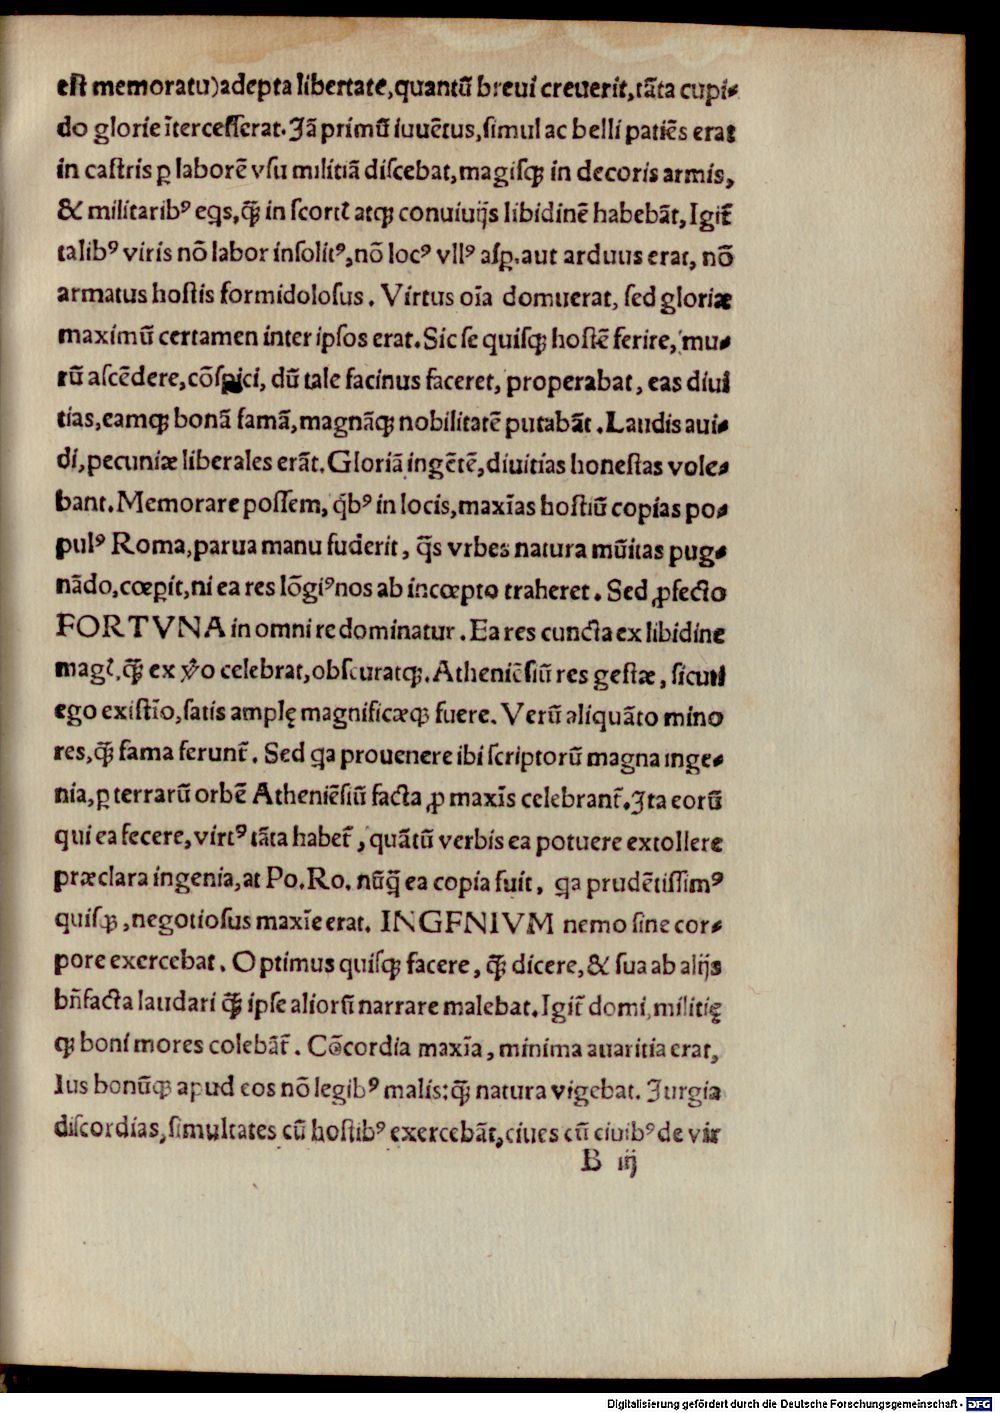 est memoratu)adepta libertate,quantū breui creuerit,tāta cupi⸗
do glorie ītercesserat.Jā primū iuuētus,simul ac belli patiēs erat
in castris ꝑ laborē vsu militiā discebat,magisqꝫ in decoris armis,
& militaribꝰ eqs,qꝫ̄ in scortꝭ atqꝫ conuiuijs libidinē habebāt,Igit᷑
talibꝰ viris nō labor insolitꝰ,nō locꝰ vllꝰ asꝑ.aut arduus erat, nō
armatus hostis formidolosus. Virtus oīa domuerat, sed gloriæ
maximū certamen inter ipsos erat.Sic se quisqꝫ hostē ferire, mu⸗
rū ascēdere,cōspici, dū tale facinus faceret, properabat, eas diui
tias,eamqꝫ bonā famā,magnāqꝫ nobilitatē putabāt .Laudis aui⸗
di,pecuniæ liberales erāt.Gloriā ingētē,diuitias honestas vole⸗
bant.Memorare possem, q̇bꝰ in locis,maxīas hostiū copias po⸗
pulꝰ Roma,parua manu fuderit, q̄s vrbes natura mūitas pug⸗
nādo,cœꝑit,ni ea res lōgiꝰnos ab incœpto traheret. Sed ꝓfecto
FORTVNA in omni re dominatur .Ea res cuncta ex libidine
magꝭ.qꝫ̄ ex v̊o celebrat,obscuratqꝫ.Atheniēsiū res gestæ, sicuti
ego existīo,satis amplę magnificæqꝫ fuere. Verū aliquāto mino
res,qꝫ̄ fama ferunt᷑. Sed qa prouenere ibi scriptorū magna inge⸗
nia,ꝑ terrarū orbē Atheniēsiū facta ꝓ maxīs celebrant᷑.Jta eorū
qui ea fecere,virtꝰ tāta habet᷑ , quātū verbis ea potuere extollere
præclara ingenia,at Po.Ro. nūq̄ ea copia fuit, qa prudētissimꝰ
quisqꝫ,negotiosus maxīe erat. INGENIVM nemo sine cor⸗
pore exercebat. Optimus quisqꝫ facere, qꝫ̄ dicere,& sua ab alijs
bn̄facta laudari qꝫ̄ ipse aliorū narrare malebat.Igit᷑ domi,militię
qꝫ boni mores colebāt᷑. Cōcordia maxīa, minima auaritia erat,
Ius bonūqꝫ apud eos nō legibꝰ malis:qꝫ̄ natura vigebat. Jurgia
discordias,simultates cū hostibꝰ exercebāt,ciues cū ciuibꝰ de vir
B iij
Digitalisierung gefördert durch die Deutsche Forschungsgemeinschaft - DFG